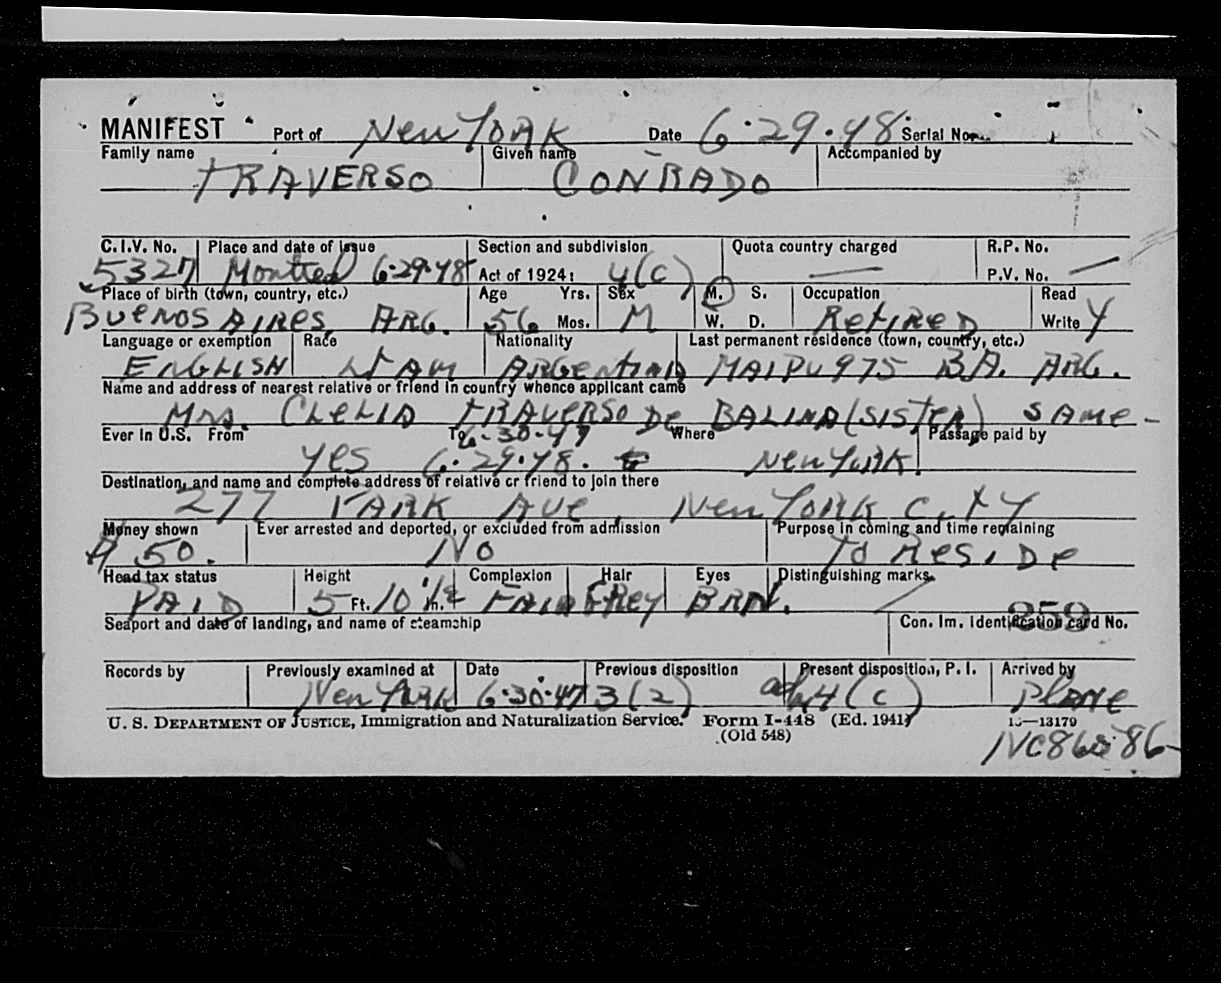 MANIFEST Port of New York Date 6-29-48 Serial No.
Family name Given name Accompanied by
TRAVERSO CONRADO
C.I.V. No. Place and date of issue Section and subdivision Quota country charged R.P. No.
5327 Montreal 6-29-48 Act of 1924: 4(C) P.V. No.
Place of birth (town, country, etc.) Age Yrs. Sex M. S. Occupation Read
BUENOS AIRES, ARG. 56 Mos. M W. D. RETIRED Write Y
Language or exemption Race Nationality Last permanent residence (town, country, etc.)
ENGLISH ARGENTINA MAIPU 975 B.A. ARG.
Name and address of nearest relative or friend in country whence applicant came
MRS. CLELIA TRAVERSO DE (SISTER) SAME-
Ever in U.S. From To 6-30-47 Where Passage paid by
yes 6-29-48. New York
Destination, and name and complete address of relative or friend to join there
277 PARK AVE, NEW YORK C, NY
Money shown Ever arrested and deported, or excluded from admission Purpose in coming and time remaining
$50. NO TO RESIDE
Head tax status Height Complexion Hair Eyes Distinguishing marks
PAID 5 Ft. 10 1/2 In. FAIR GREY BRN.
Seaport and date of landing, and name of steamship Con. Im. Identification card No.
259
Records by Previously examined at Date Previous disposition Present disposition, P. I. Arrived by
New York 6-30-47 3(2) adm 4(c) Plane
U. S. DEPARTMENT OF JUSTICE, Immigration and Naturalization Service. Form I-448 (Ed. 1941) 16—13179
(Old 548)